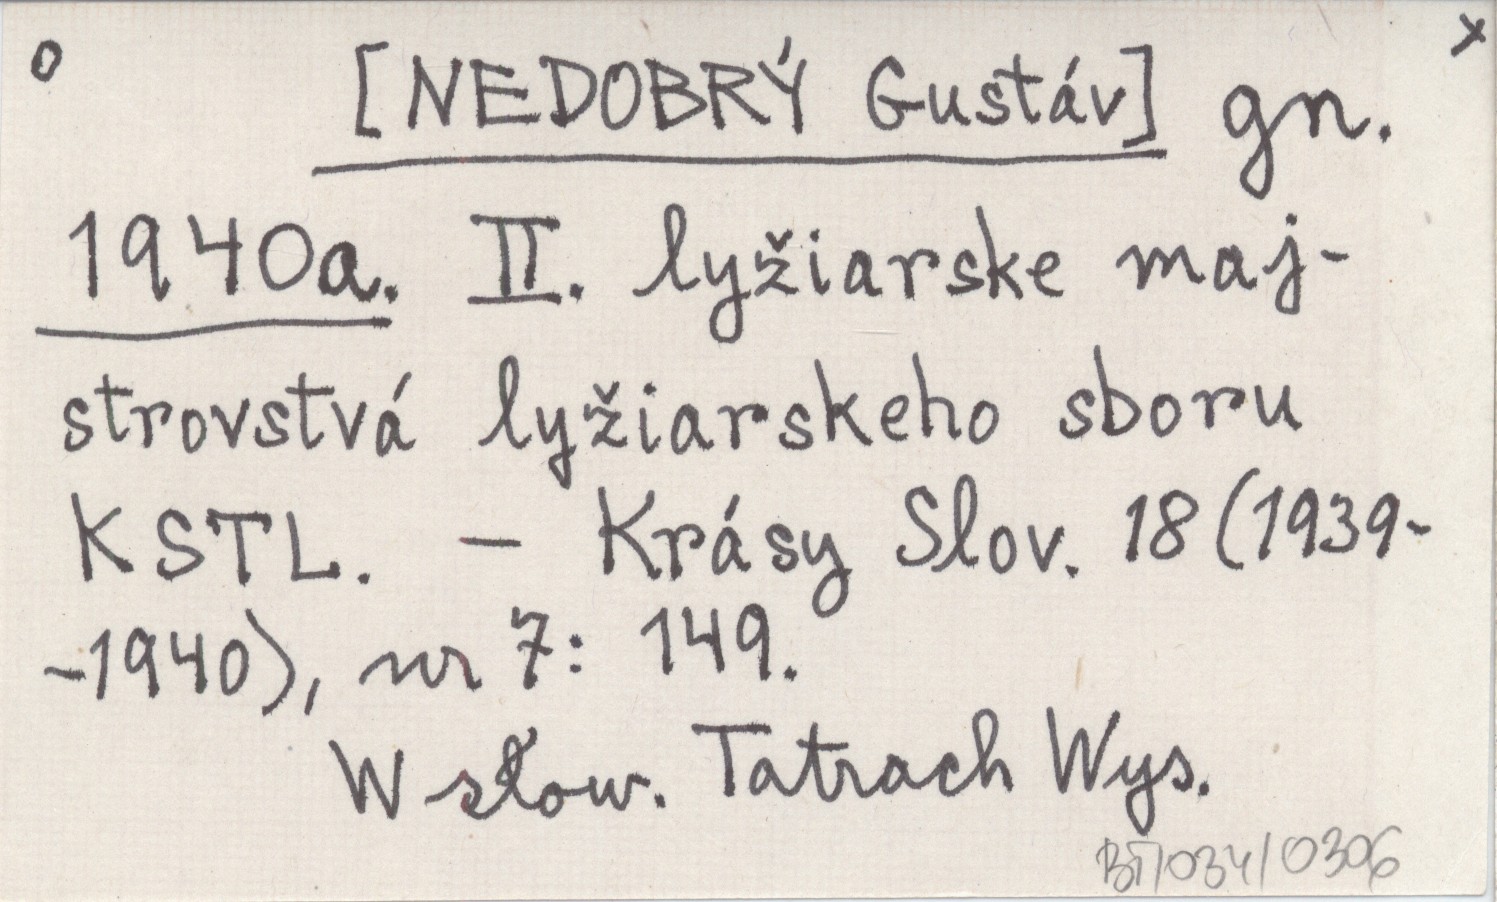 o [NEDOBRÝ Gustáv] gn. x
1940a. II. lyžiarske maj-
strovstvá lyžiarskeho sboru
KSTL. — Krásy Slov. 18 (1939-
-1940), nr 7: 149.
W słow. Tatrach Wys.
BT/034/0306